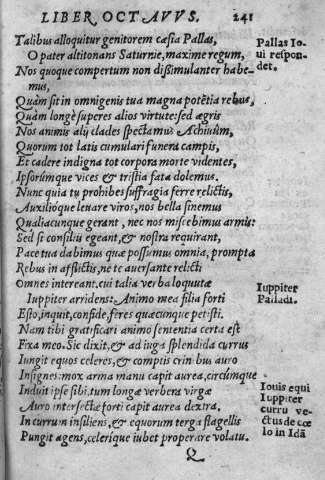 LIBER OCTAVVS. 241
Talibus alloquitur genitorem cæsia Pallas,
O pater altitonans Saturnie, maxime regum,
Nos quoque compertum non dißimulanter habe-
mus,
Quàm sit in omnigenis tua magna potẽtia rebus,
Quàm longè superes alios virtute: sed ægris
Nos animis alij clades spectamus Achiuûm,
Quorum tot latis cumulari funera campis,
Et cadere indigna tot corpora morte videntes,
Ipsorúmque vices & tristia fata dolemus.
Nunc quia tu prohibes suffragia ferre relictis,
Auxilióque leuare viros, nos bella sinemus
Qualiacunque gerant, nec nos miscebimus armis:
Sed si consilij egeant, & nostra requirant,
Pace tua dabimus quæ possumus omnia, prompta
Rebus in afflictis, ne te auersante relicti
Omnes intereant. cui talia verba loquutæ
Iuppiter arridens: Animo mea filia forti
Esto, inquit, confide, feres quæcunque petisti.
Nam tibi gratificari animo sententia certa est
Fixa meo. Sic dixit, & ad iuga splendida currus
Iungit equos celeres, & comptis crinibus auro
Insignes: mox arma manu capit aurea, circúmque
Induit ipse sibi, tum longæ verbera virgæ
Auro intersectæ forti capit aurea dextra.
In currum insiliens, & equorum terga flagellis
Pungit agens, celerique iubet properare volatu.
Q
Pallas Io-
ui respon-
det.
Iuppiter
Palladi.
Iouis equi
Iuppiter
curru ve-
ctus de cœ
lo in Idã